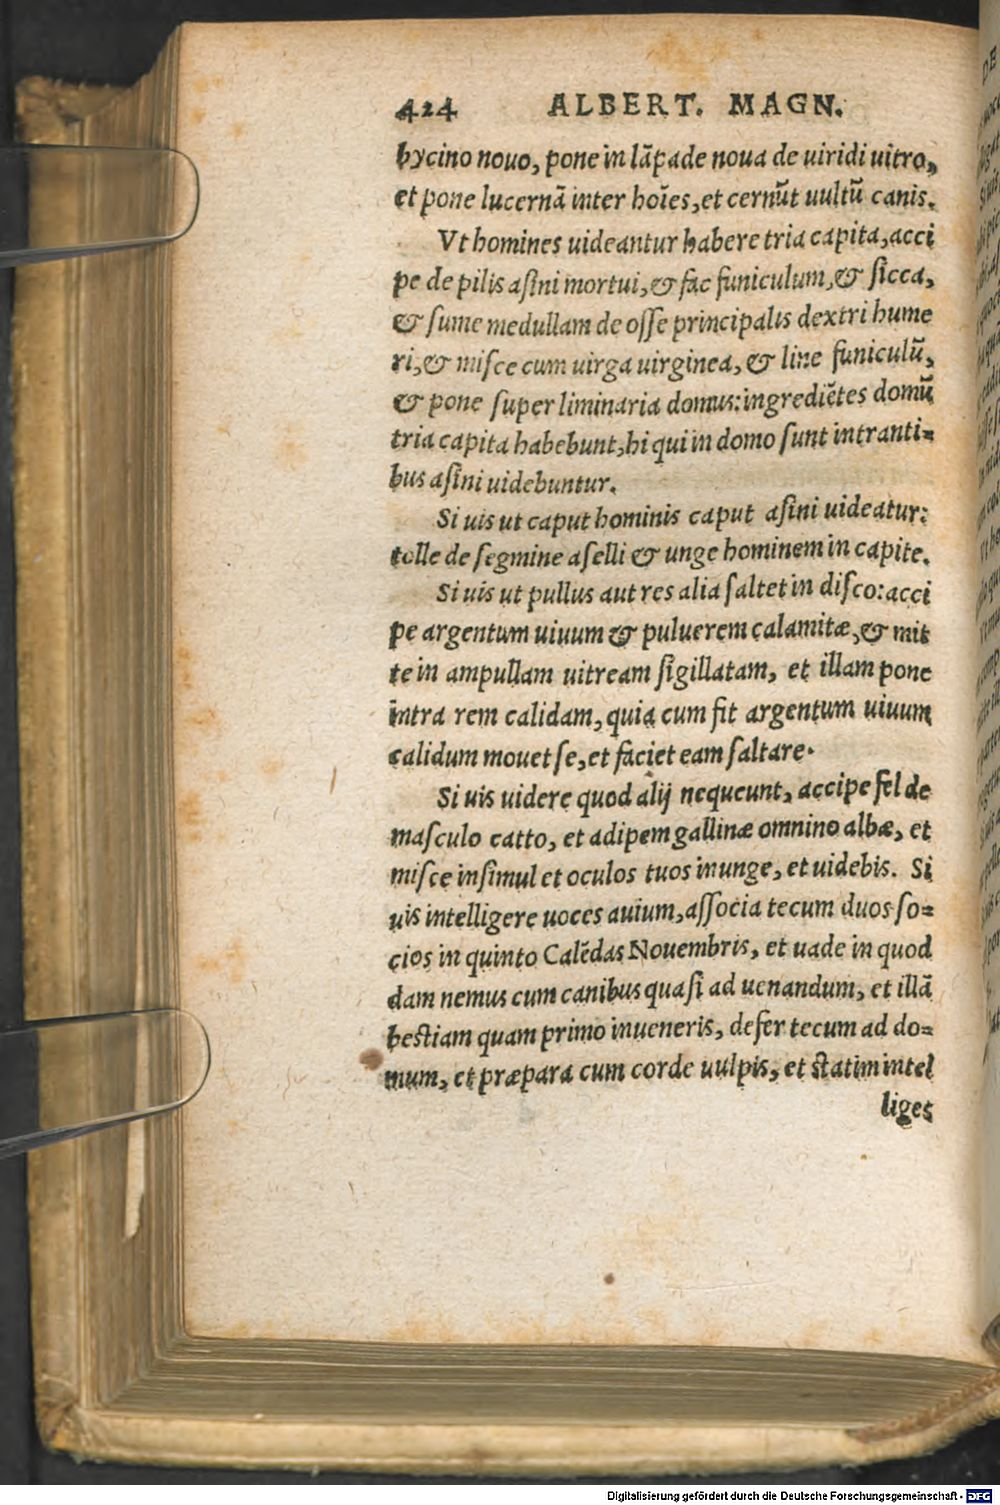 424 ALBERT. MAGN.
bycino nouo, pone in lãpade noua de uiridi uitro,
et pone lucernã inter hoĩes, et cernũt uultũ canis.
Vt homines uideantur habere tria capita, acci
pe de pilis aſini mortui, & fac funiculum, & ſicca,
& ſume medullam de oſſe principalis dextri hume
ri, & miſce cum uirga uirginea, & line funiculũ,
& pone ſuper liminaria domus: ingrediẽtes domũ
tria capita habebunt, hi qui in domo ſunt intranti=
bus aſini uidebuntur.
Si uis ut caput hominis caput aſini uideatur:
tolle de ſegmine aſelli & unge hominem in capite.
Si uis ut pullus aut res alia ſaltet in diſco: acci
pe argentum uiuum & puluerem calamitæ, & mit
te in ampullam uitream ſigillatam, et illam pone
intra rem calidam, quia cum fit argentum uiuum
calidum mouet ſe, et faciet eam ſaltare.
Si uis uidere quod alij nequeunt, accipe fel de
maſculo catto, et adipem gallinæ omnino albæ, et
miſce inſimul et oculos tuos inunge, et uidebis. Si
uis intelligere uoces auium, aſſocia tecum duos ſo=
cios in quinto Calẽdas Nouembris, et uade in quod
dam nemus cum canibus quaſi ad uenandum, et illã
beſtiam quam primo inueneris, defer tecum ad do=
mum, et præpara cum corde uulpis, et ſtatim intel
liges
Digitalisierung gefördert durch die Deutsche Forschungsgemeinschaft - DFG